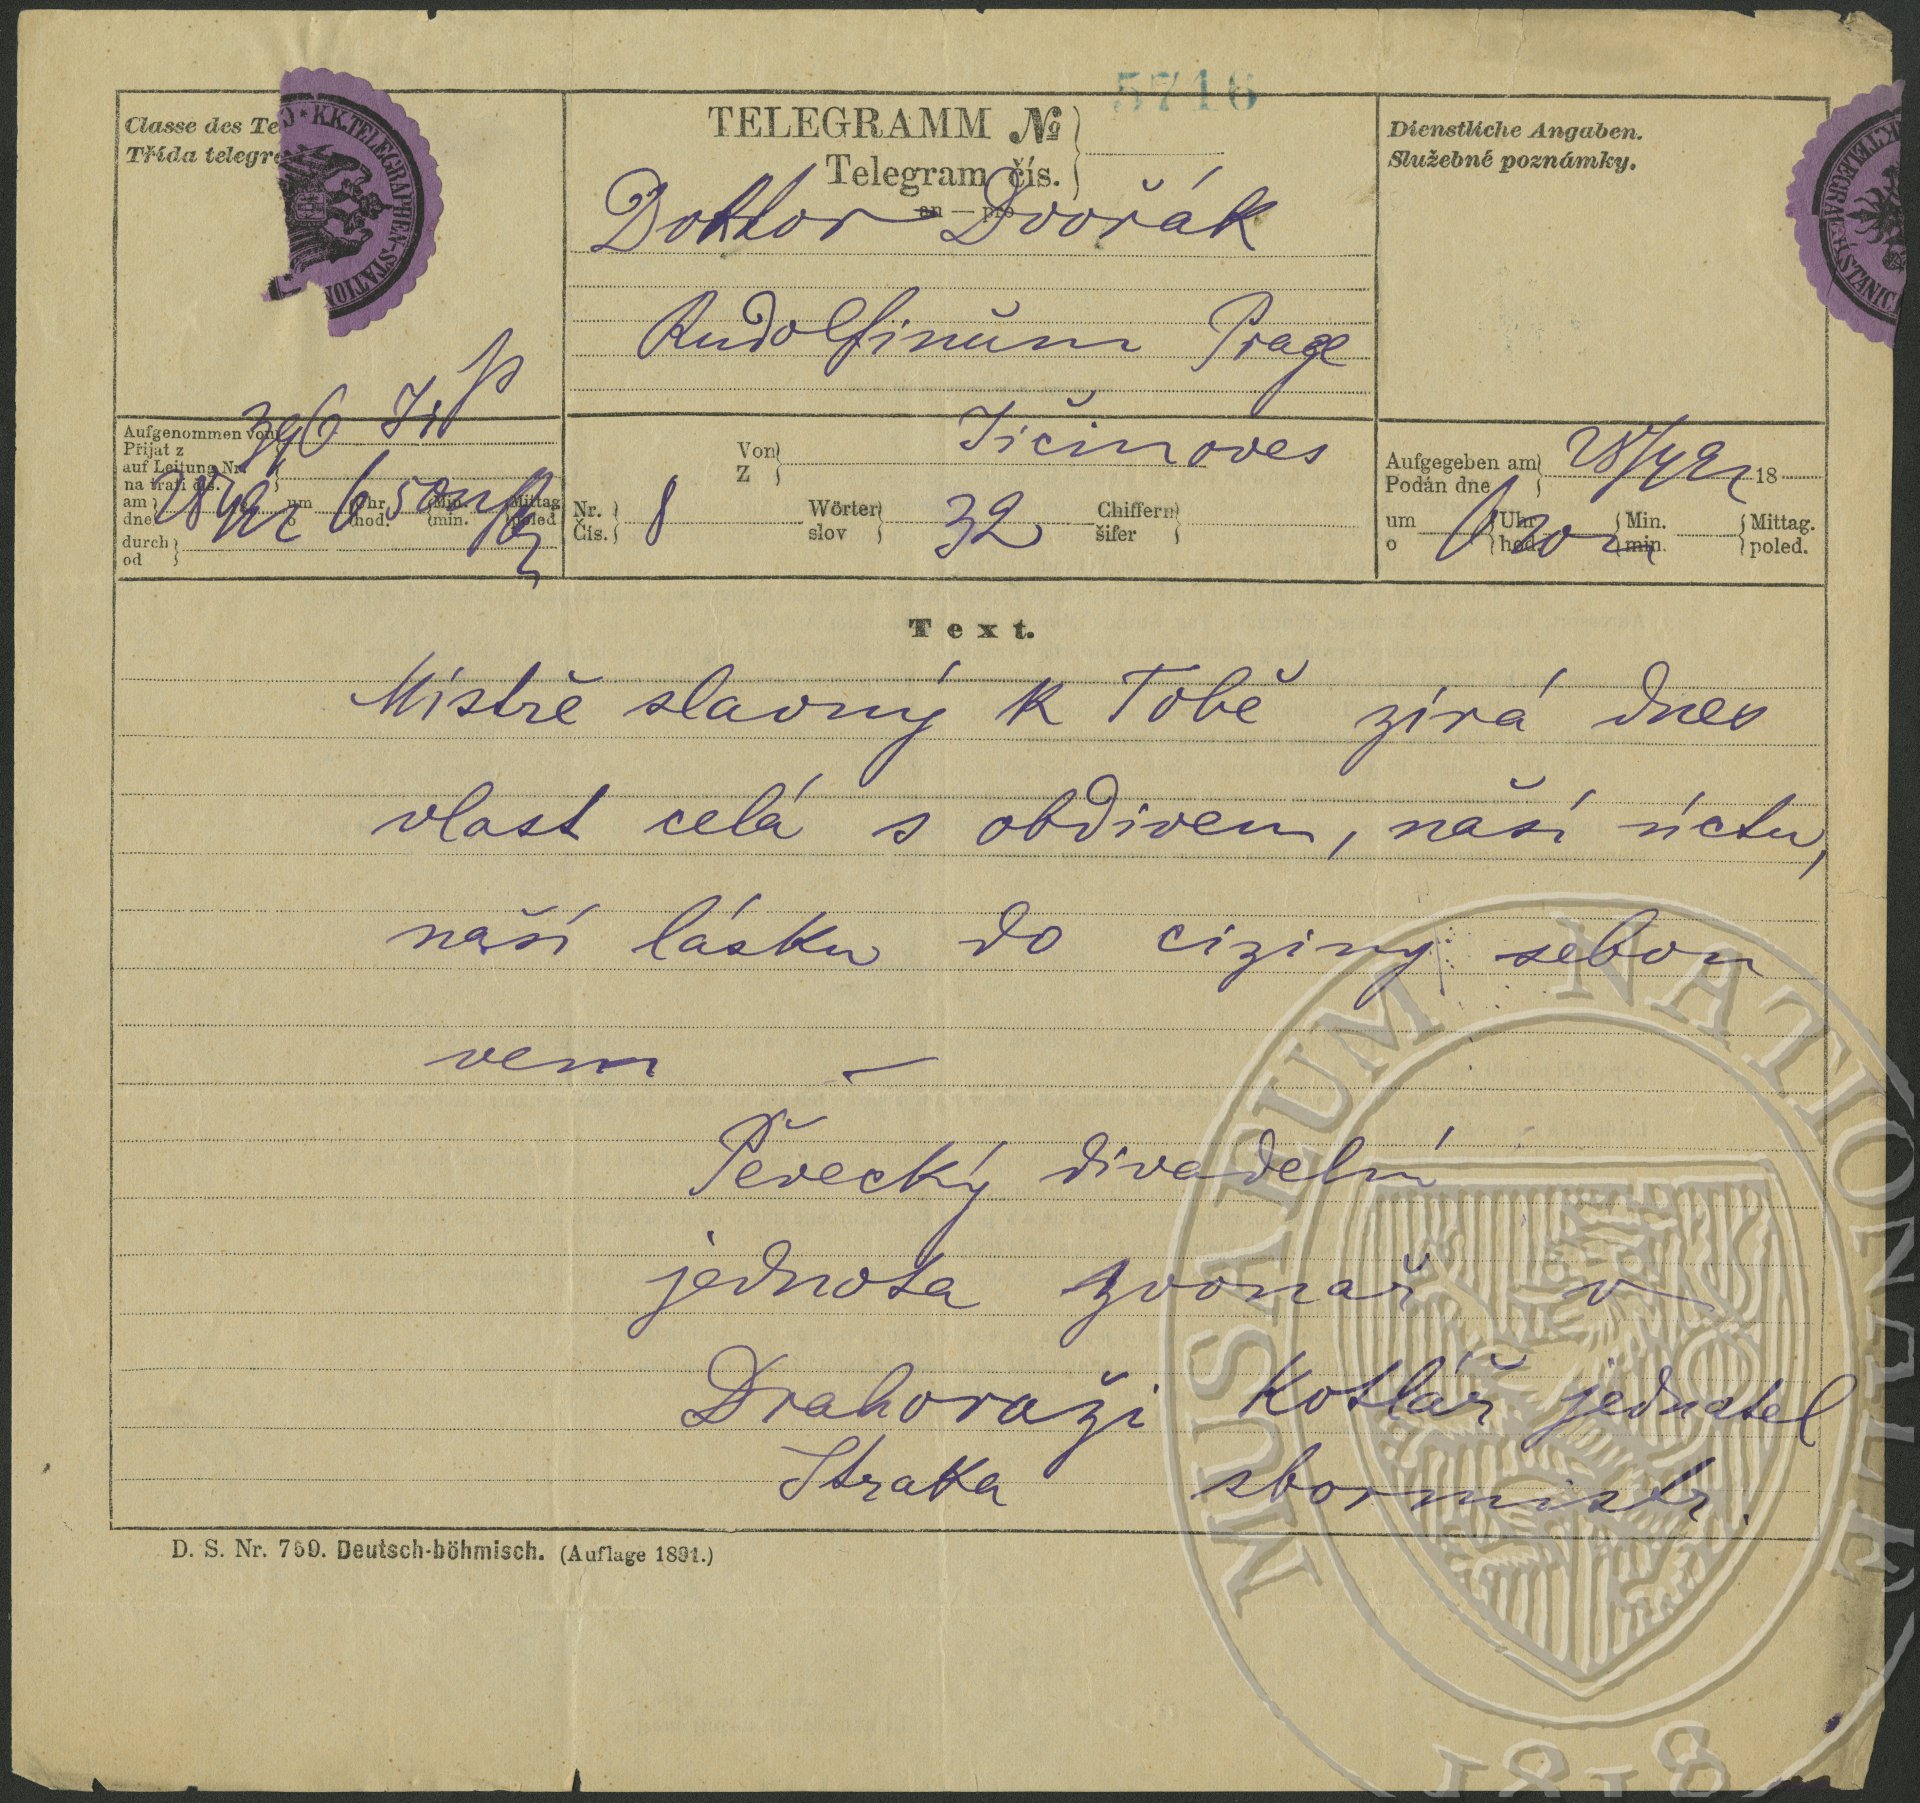 5716
Classe des Te
Třída telegr
K.K. TELEGRAPHEN-STATION
TELEGRAMM №
Telegram čís.
an — pro
Dienstliche Angaben.
Služebné poznámky.
K. TELEGRAF. STANICE
Doktor Dvořák
Rudolfinum Prage
Aufgenommen von
Přijat z
396
auf Leitung Nr.
na trati čís.
am
dne
um
o
Uhr
hod.
6 50
Min.
min.
Mittag
poled
durch
od
Von
Z
Jičinoves
Nr.
Čís.
8
Wörter
slov
32
Chiffern
šifer
Aufgegeben am
Podán dne
18
um
o
Uhr
hod
20
Min.
min.
Mittag.
poled.
Text.
Mistře slavný k Tobě zírá dnes
vlast celá s obdivem, naší úctu,
naší lásku do ciziny sebou
vem —
Pěvecký divadelní
jednota zvonař v
Drahoraži Kotlář jednatel
Straka sbormistr.
D. S. Nr. 769. Deutsch-böhmisch. (Auflage 1891.)
MUSAEUM NATIONALE
1818